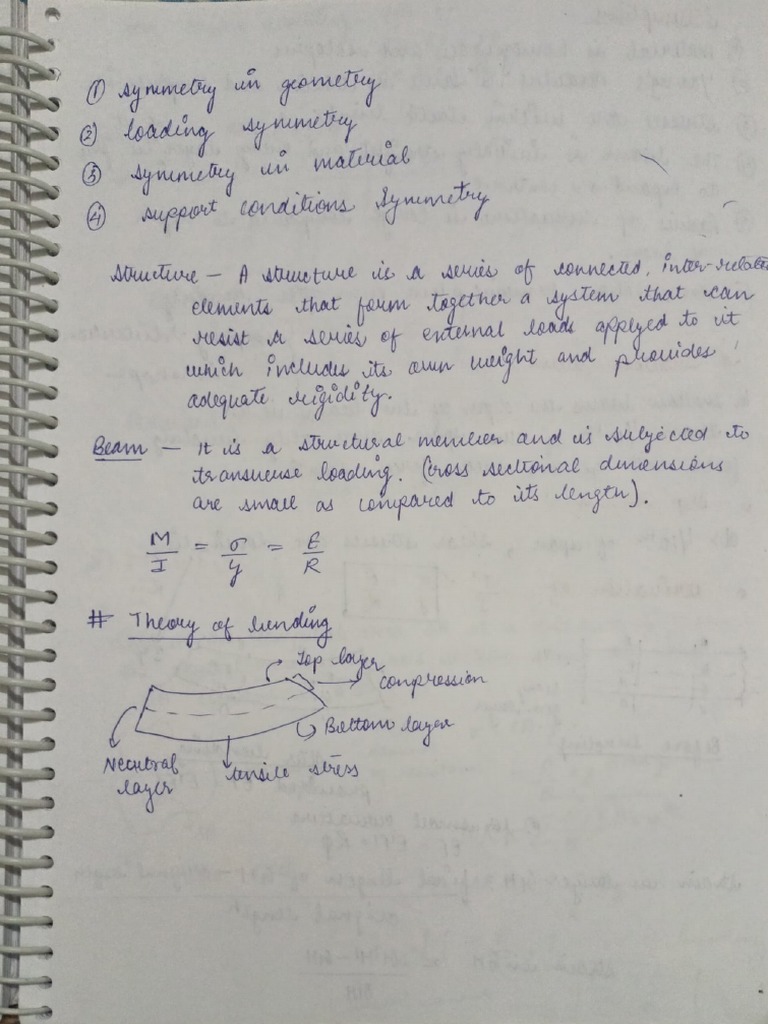 ① symmetry in geometry
② loading symmetry
③ symmetry in material
④ support conditions symmetry
Structure – A structure is a series of connected, inter-related
elements that form together a system that can
resist a series of external loads applyed to it
which includes its own weight and provides
adequate rigidity.
Beam – It is a structural member and is subjected to
transverse loading. (Cross sectional dimensions
are small as compared to its length).
M/I = σ/y = E/R
# Theory of bending
Top layer
compression
Bottom layer
Neutral
layer
tensile stress